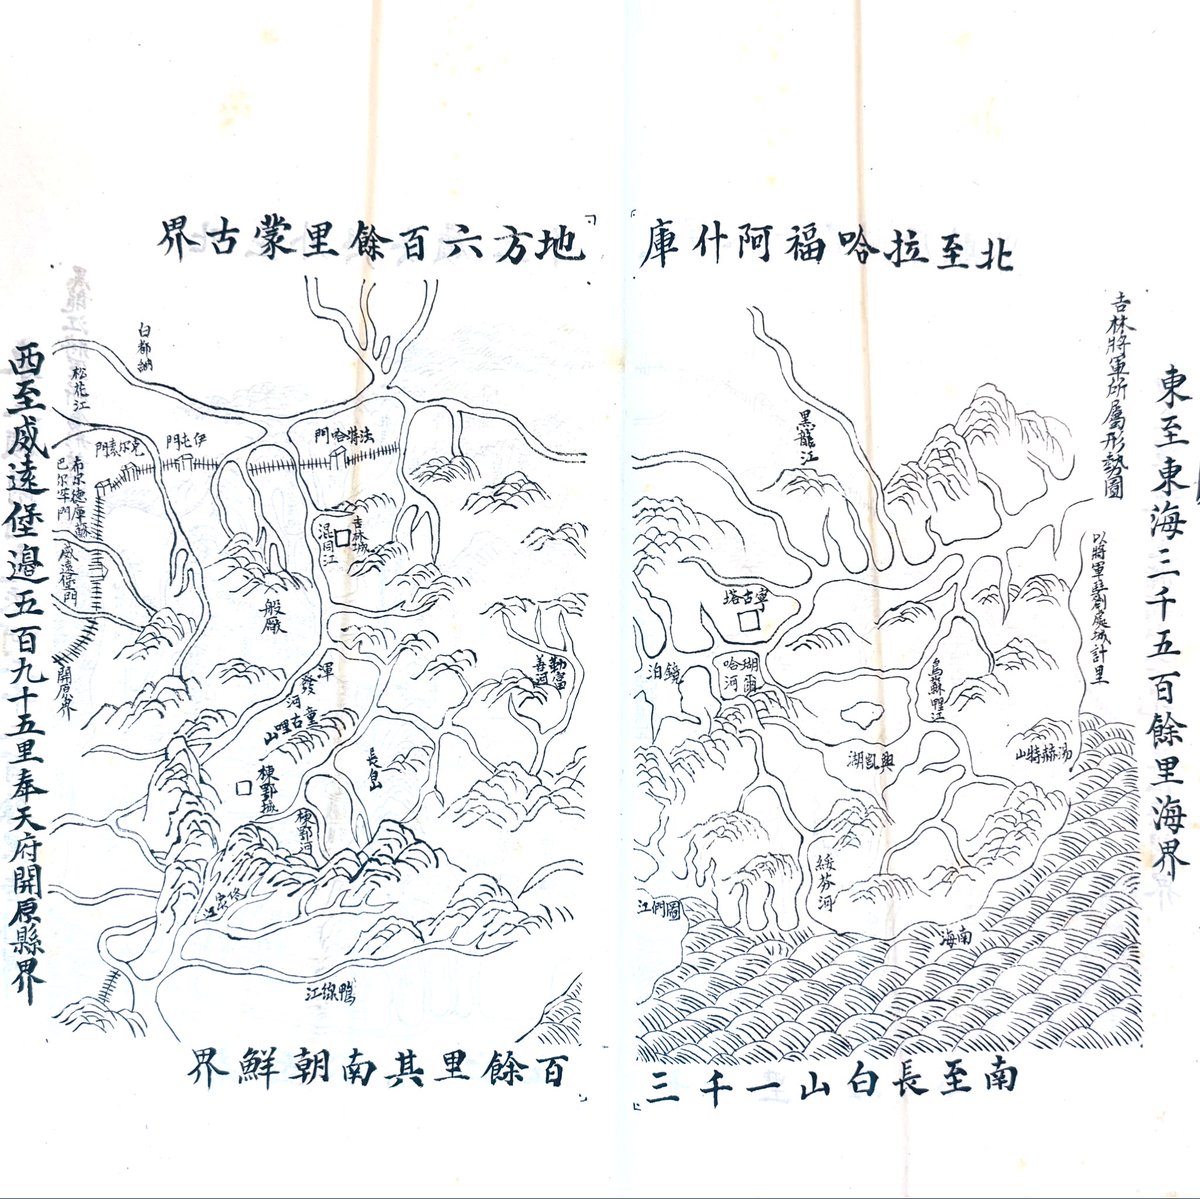 吉林將軍所屬形勢圖
以將軍駐劄處城計里
東至東海三千五百餘里海界
北至拉哈福阿什庫
地方六百餘里蒙古界
南至長白山一千三
百餘里其南朝鮮界
西至威遠堡邊五百九十五里奉天府開原縣界
黑龍江
寧古塔
鏡泊
瑚爾哈河
烏蘇哩江
興凱湖
湯赫特山
綏芬河
圖們江
南海
白都訥
松花江
法特哈門
伊屯門
克尔素門
布尔德庫蘇
巴尔罕門
威遠堡門
開原界
吉林城
混同江
船廠
輝發河
勒富善河
童古哩山
長岛
棟鄂城
棟鄂河
佟家江
鴨綠江